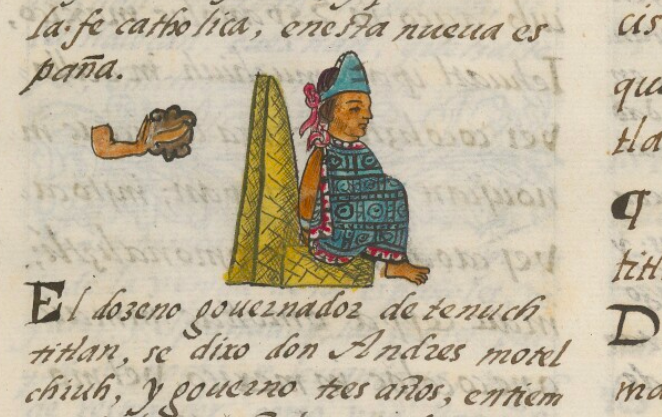 la fe catholica, en esta nueua es
paña.
El dozeno gouernador de tenuch
titlan, se dixo don Andres motel
chiuh, y gouerno tres años, en tiem
cis
qu
tla
¶
titl
D
ma